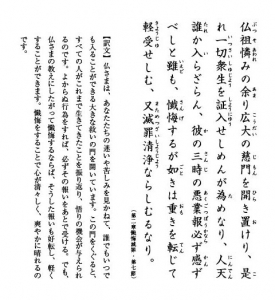 仏祖憐みの余り広大の慈門を開き置けり、是
れ一切衆生を証入せしめんが為めなり、人天
誰か入らざらん、彼の三時の悪業報必ず感ず
べしと雖も、懺悔するが如きは重きを転じて
軽受せしむ、又滅罪清浄ならしむるなり。
（第二章懺悔滅罪・第七節）
【訳文】仏さまは、あなたたちの迷いや苦しみを見かねて、誰でもいつで
も入ることができる大きな救いの門を開いています。この門をくぐると、
すべての人がこれまで生きてきたことを振り返り、悟りの機会が与えられ
るのです。よからぬ行為をすれば、必ずその報いをあとで受ける。でも、
仏さまの教えにしたがって懺悔するならば、そうした報いも好転し、軽く
することができます。懺悔をすることで心が清々しく、爽やかに晴れるの
です。